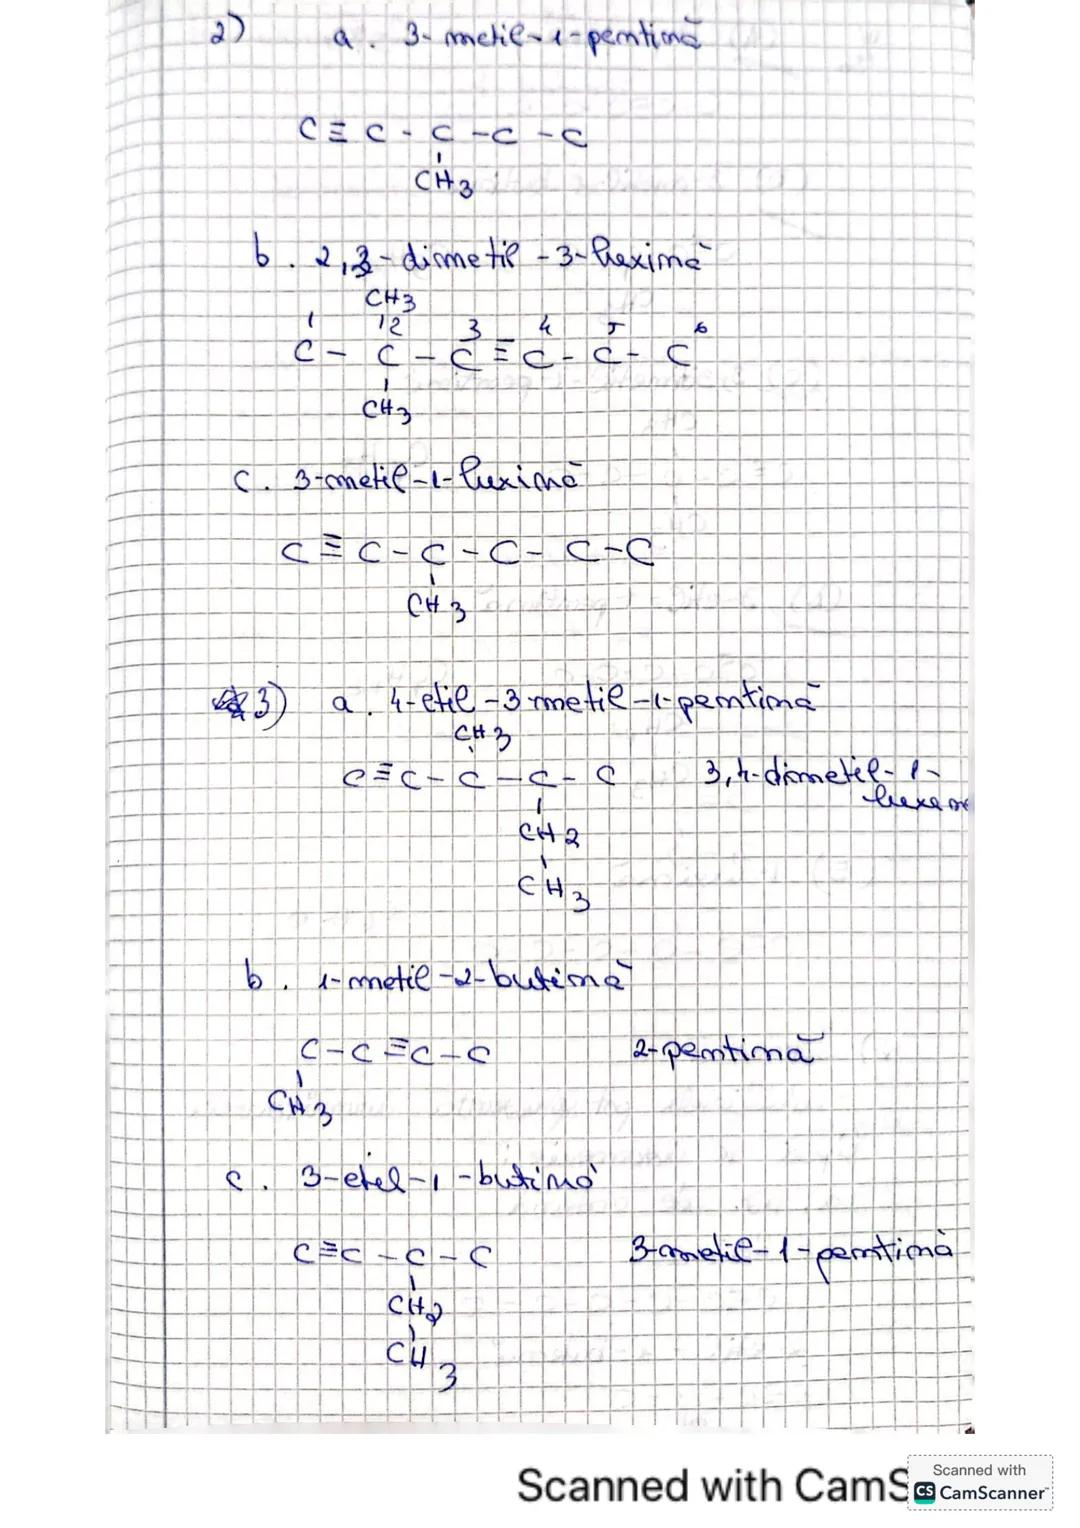 2) a. 3-metil-1-pentină
C ≡ C - C - C - C
CH3
b. 2,2-dimetil-3-hexină
CH3
1 2 3 4 5 6
C - C - C ≡ C - C - C
CH3
c. 3-metil-1-hexină
C ≡ C - C - C - C - C
CH3
3) a. 4-etil-3 metil-1-pentină
CH3
C ≡ C - C - C - C 3,4-dimetil-1-
CH2
CH3
b. 1-metil-2-butină
C - C ≡ C - C 2-pentină
CH3
c. 3-etil-1-butină
C ≡ C - C - C 3-metil-1-pentină
CH2
CH3
Scanned with CamS
Scanned with
CS CamScanner